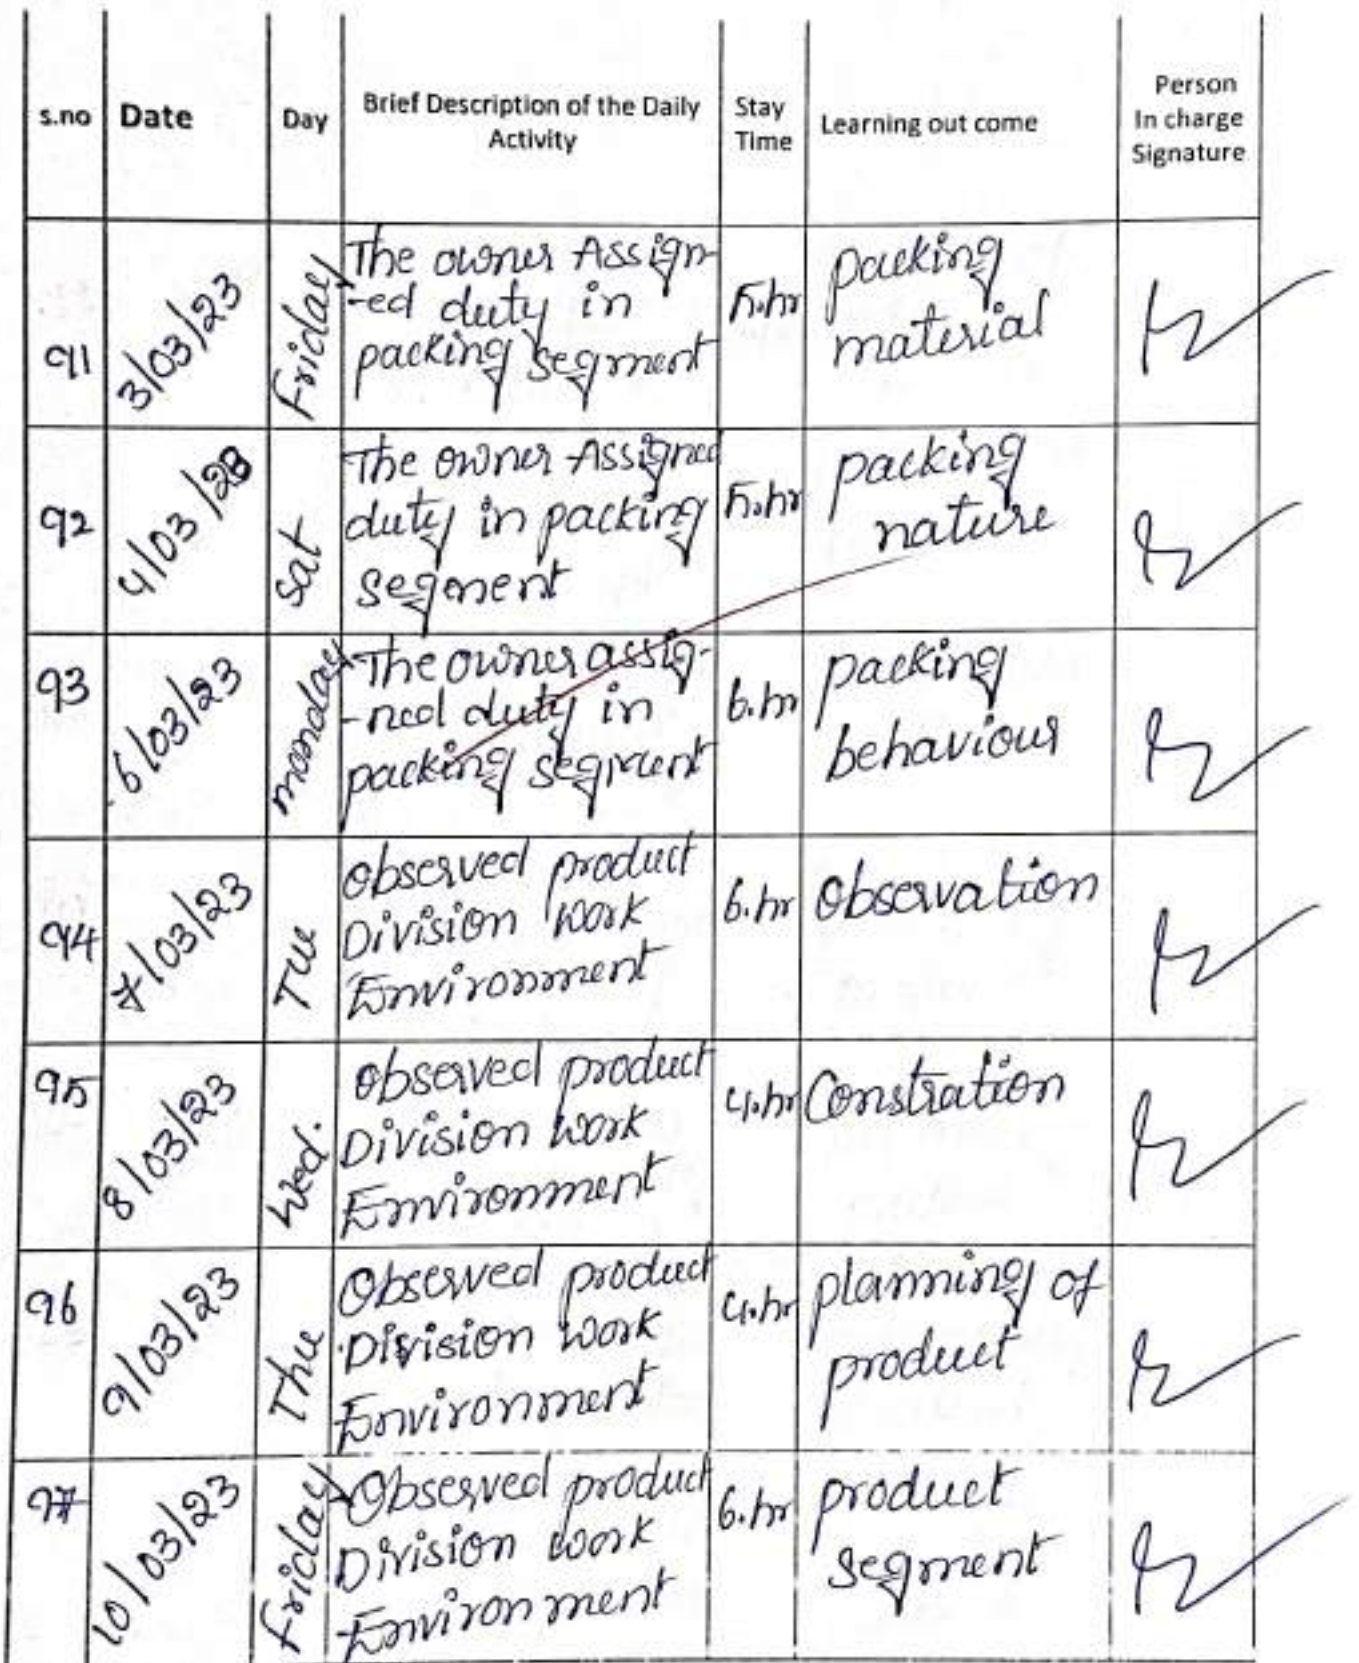 s.no Date Day Brief Description of the Daily Activity Stay Time Learning out come Person In charge Signature
91 3/03/23 Friday The owner Assign-
-ed duty in
packing segment 5.hr packing
material
92 4/03/23 Sat The owner Assigned
duty in packing
segment 5.hr packing
nature
93 6/03/23 monday The owner assig-
-ned duty in
packing segment 6.hr packing
behaviour
94 7/03/23 Tue Observed product
Division work
Environment 6.hr Observation
95 8/03/23 Wed. Observed product
Division work
Environment 4.hr Constration
96 9/03/23 Thu Observed product
Division work
Environment 4.hr planning of
product
97 10/03/23 Friday Observed product
Division work
Environment 6.hr product
segment